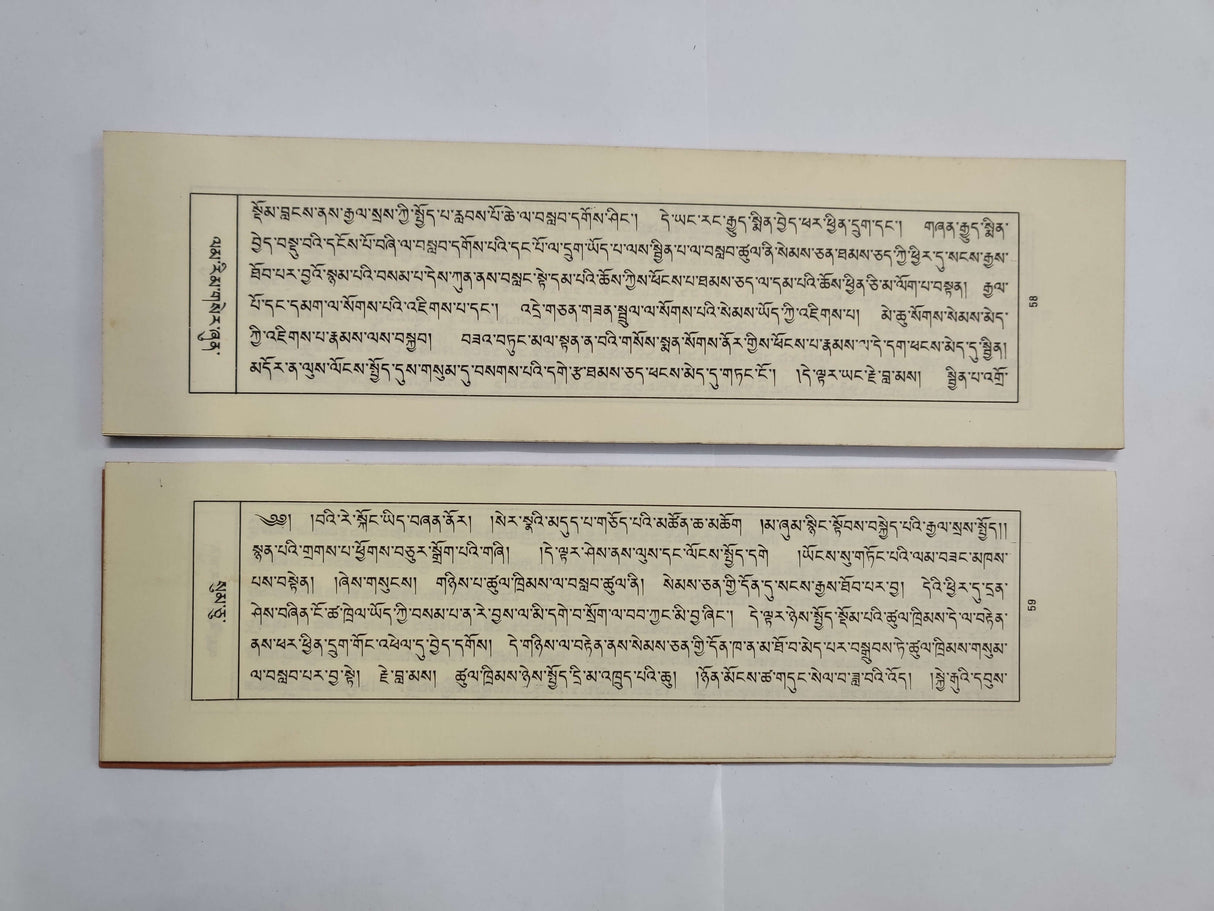 ལམ་རིམ་གསེར་ཞུན་
སྡོམ་བླངས་ནས་རྒྱལ་སྲས་ཀྱི་སྤྱོད་པ་རླབས་པོ་ཆེ་ལ་བསླབ་དགོས་ཤིང་། དེ་ཡང་རང་རྒྱུད་སྨིན་བྱེད་ཕར་ཕྱིན་དྲུག་དང་། གཞན་རྒྱུད་སྨིན་
བྱེད་བསྡུ་བའི་དངོས་པོ་བཞི་ལ་བསླབ་དགོས་པའི་དང་པོ་ལ་དྲུག་ཡོད་པ་ལས་སྦྱིན་པ་ལ་བསླབ་ཚུལ་ནི་སེམས་ཅན་ཐམས་ཅད་ཀྱི་ཕྱིར་དུ་སངས་རྒྱས་
ཐོབ་པར་བྱའོ་སྙམ་པའི་བསམ་པ་དེས་ཀུན་ནས་བསླང་སྟེ་དམ་པའི་ཆོས་ཀྱིས་ཕོངས་པ་ཐམས་ཅད་ལ་དམ་པའི་ཆོས་ཕྱིན་ཅི་མ་ལོག་པ་བསྟན། རྒྱལ་
པོ་དང་དམག་ལ་སོགས་པའི་འཇིགས་པ་དང་། འདྲེ་གཅན་གཟན་སྦྲུལ་ལ་སོགས་པའི་སེམས་ཡོད་ཀྱི་འཇིགས་པ། མེ་ཆུ་སོགས་སེམས་མེད་
ཀྱི་འཇིགས་པ་རྣམས་ལས་བསྐྱབ། བཟའ་བཏུང་མལ་སྟན་ན་བའི་གསོས་སྨན་སོགས་ནོར་གྱིས་ཕོངས་པ་རྣམས་ལ་དེ་དག་ཕངས་མེད་དུ་སྦྱིན།
མདོར་ན་ལུས་ལོངས་སྤྱོད་དུས་གསུམ་དུ་བསགས་པའི་དགེ་རྩ་ཐམས་ཅད་ཕངས་མེད་དུ་གཏང་ངོ་། །དེ་ལྟར་ཡང་རྗེ་བླ་མས། སྦྱིན་པ་འགྲོ་
58
སུམ་ཅུ་
༄༅། །བའི་རེ་སྐོང་ཡིད་བཞིན་ནོར། །སེར་སྣའི་མདུད་པ་གཅོད་པའི་མཚོན་ཆ་མཆོག །མ་ཞུམ་སྙིང་སྟོབས་བསྐྱེད་པའི་རྒྱལ་སྲས་སྤྱོད།།
སྙན་པའི་གྲགས་པ་ཕྱོགས་བཅུར་སྒྲོག་པའི་གཞི། །དེ་ལྟར་ཤེས་ནས་ལུས་དང་ལོངས་སྤྱོད་དགེ །ཡོངས་སུ་གཏོང་བའི་ལམ་བཟང་མཁས་
པས་བསྟེན། །ཞེས་གསུངས། གཉིས་པ་ཚུལ་ཁྲིམས་ལ་བསླབ་ཚུལ་ནི། སེམས་ཅན་གྱི་དོན་དུ་སངས་རྒྱས་ཐོབ་པར་བྱ། དེའི་ཕྱིར་དུ་དྲན་
ཤེས་བཞིན་ངོ་ཚ་ཁྲེལ་ཡོད་ཀྱི་བསམ་པ་ན་རེ་བྱས་ལ་མི་དགེ་བ་སྲོག་ལ་བབ་ཀྱང་མི་བྱ་ཞིང་། དེ་ལྟར་ཉེས་སྤྱོད་སྡོམ་པའི་ཚུལ་ཁྲིམས་དེ་ལ་བརྟེན་
ནས་ཕར་ཕྱིན་དྲུག་གོང་འཕེལ་དུ་བྱེད་དགོས། དེ་གཉིས་ལ་བརྟེན་ནས་སེམས་ཅན་གྱི་དོན་ཁ་ན་མ་ཐོ་བ་མེད་པར་བསྒྲུབས་ཏེ་ཚུལ་ཁྲིམས་གསུམ་
ལ་བསླབ་པར་བྱ་སྟེ། རྗེ་བླ་མས། ཚུལ་ཁྲིམས་ཉེས་སྤྱོད་དྲི་མ་འཁྲུད་པའི་ཆུ། །ཉོན་མོངས་ཚ་གདུང་སེལ་བ་ཟླ་བའི་འོད། །སྐྱེ་རྒུའི་དབུས་
59